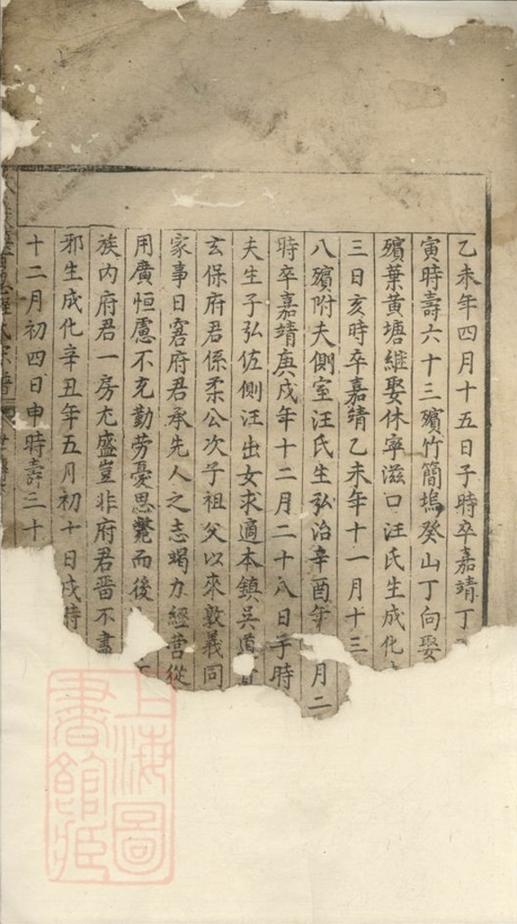 乙未年四月十五日子時卒嘉靖丁
寅時壽六十三殯竹簡塢癸山丁向娶
殯葉黃塘繼娶休寧滋口汪氏生成化
三日亥時卒嘉靖乙未年十一月十三
八殯附夫側室汪氏生弘治辛酉年 月二
時卒嘉靖庚戌年十二月二十八日子時
夫生子弘佐側汪出女求適本鎮吳道
玄保府君係柔公次子祖父以來敦義同
家事日窘府君承先人之志竭力經營從
用廣恒慮不充勤勞憂思斃而後
族內府君一房尤盛豈非府君晋不盡
邪生成化辛丑年五月初十日戌時
十二月初四日申時壽三十
上海圖書館藏